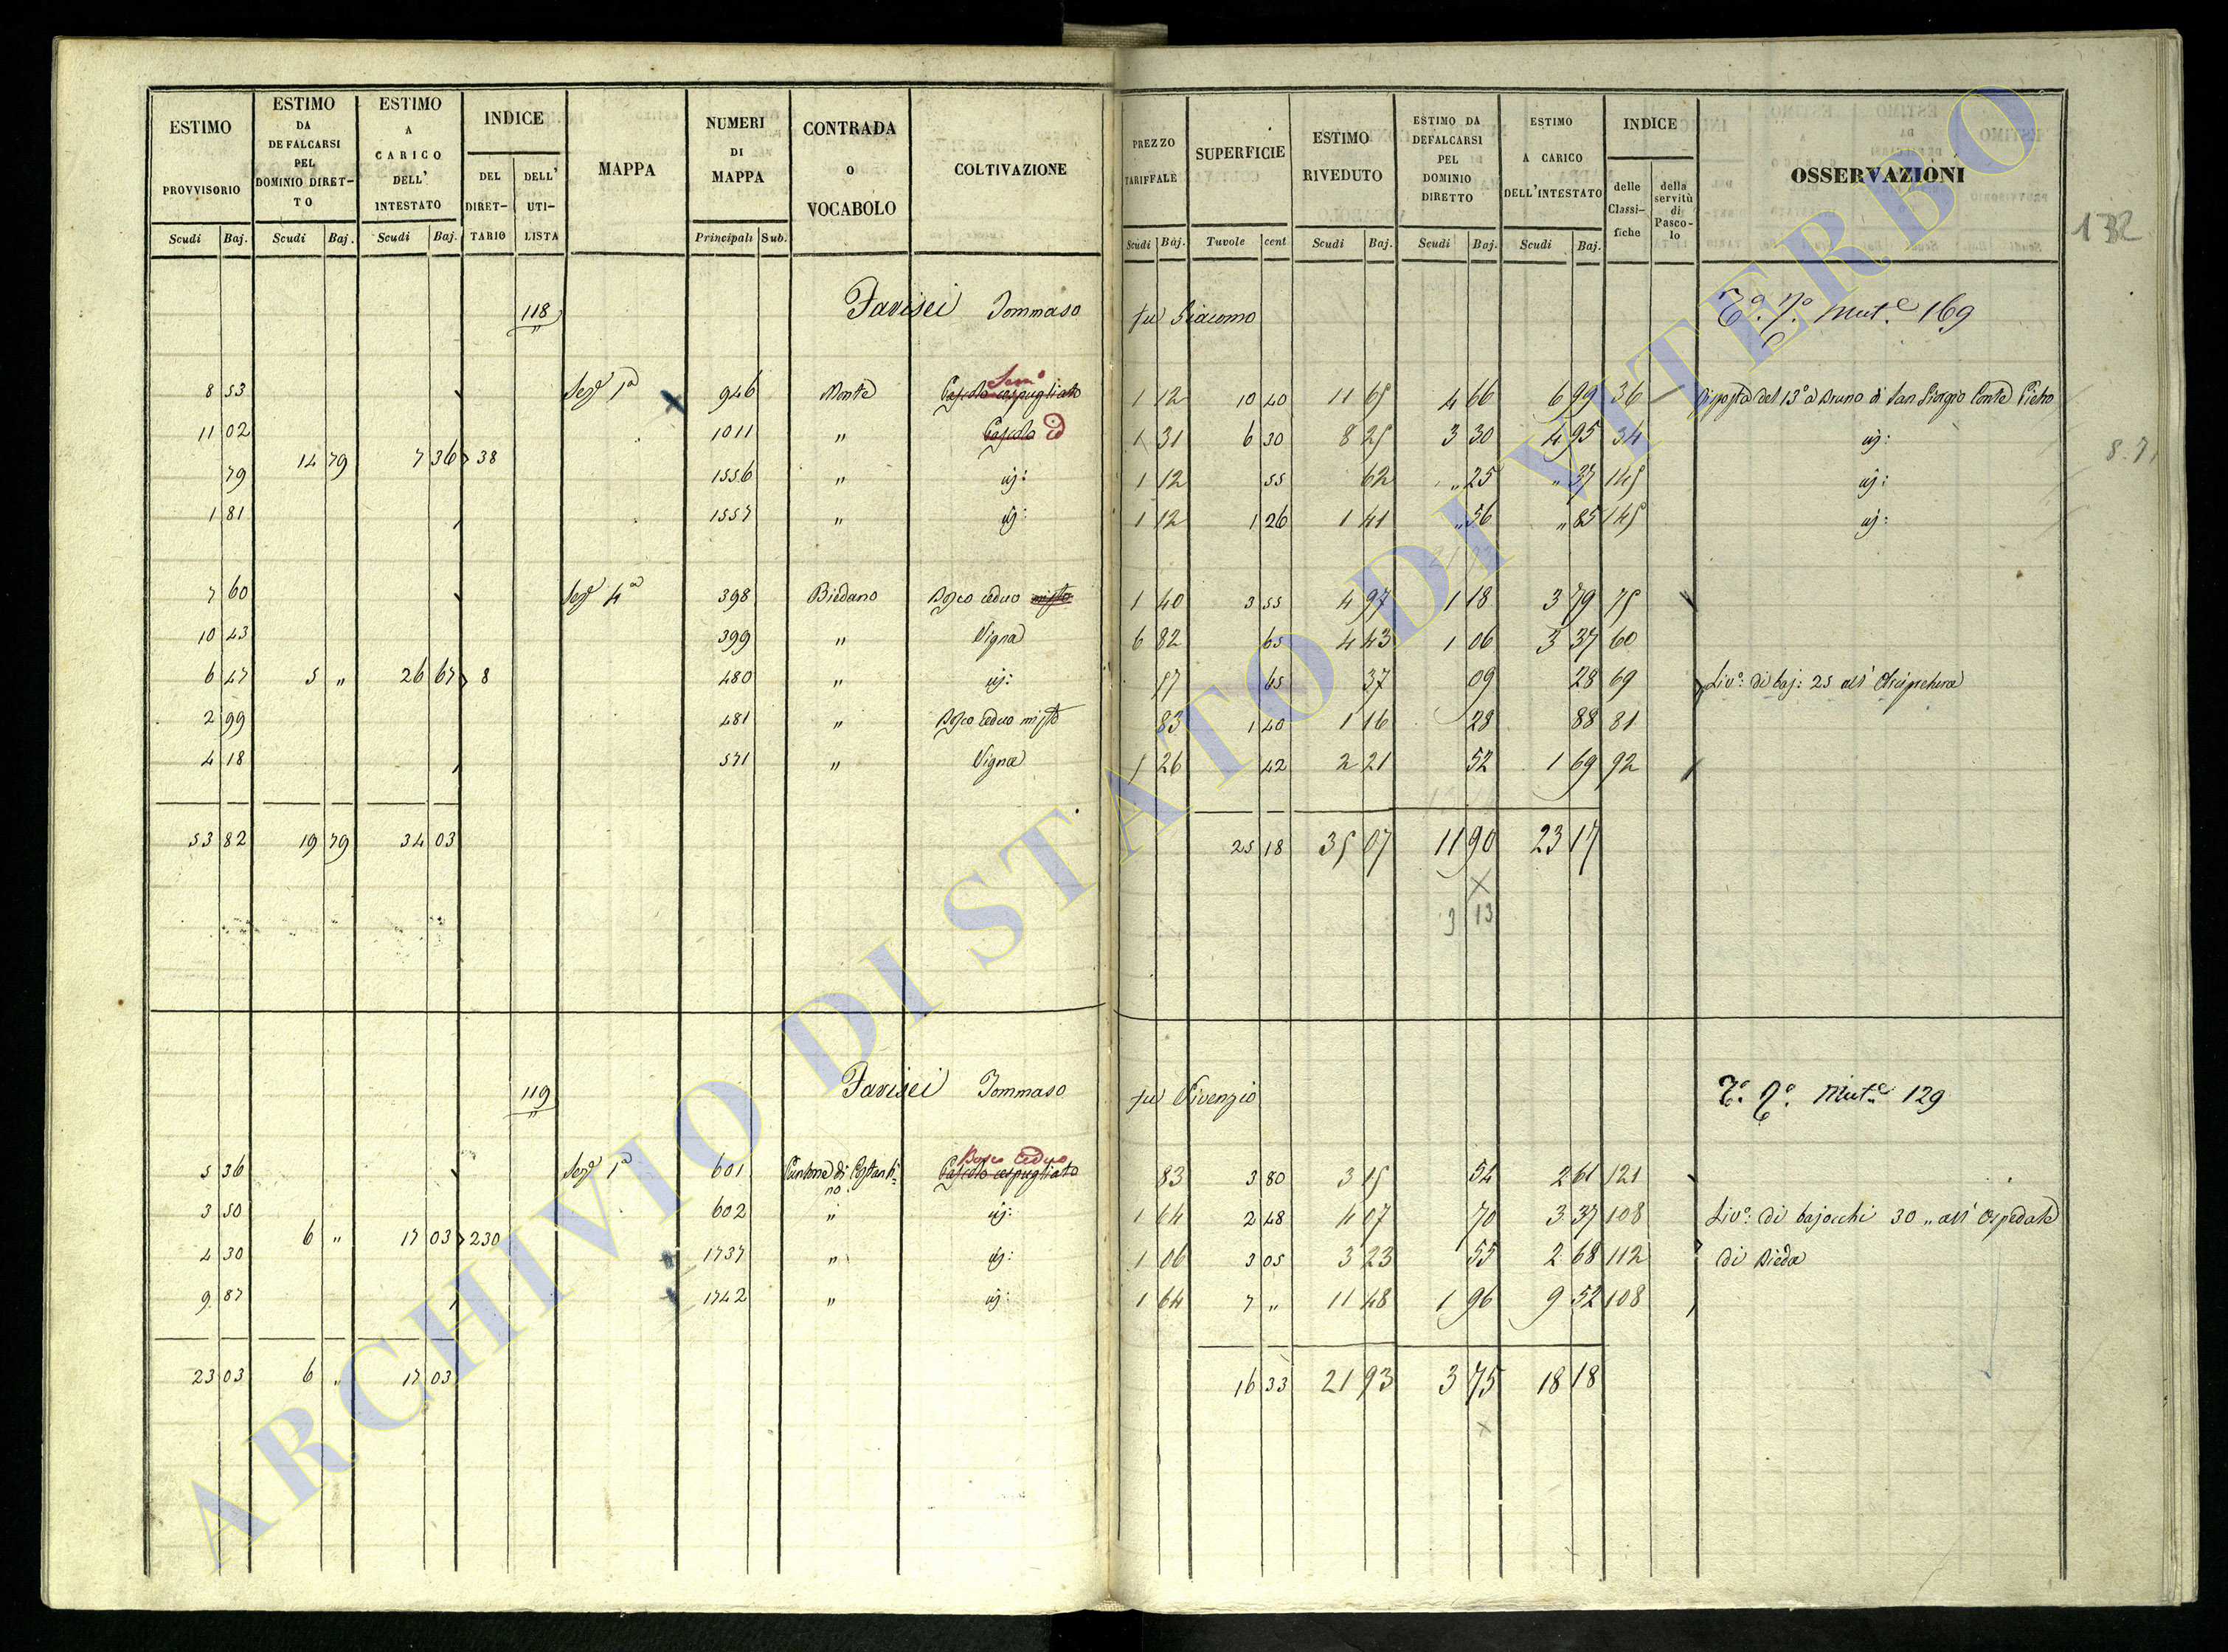 ESTIMO PROVVISORIO Scudi Baj.
ESTIMO DA DEFALCARSI PEL DOMINIO DIRETTO Scudi Baj.
ESTIMO A CARICO DELL' INTESTATO Scudi Baj.
INDICE DEL DIRETTARIO DELL' UTILISTA
MAPPA
NUMERI DI MAPPA Principali Sub.
CONTRADA o VOCABOLO
COLTIVAZIONE
PREZZO TARIFFALE Scudi Baj.
SUPERFICIE Tavole cent
ESTIMO RIVEDUTO Scudi Baj.
ESTIMO DA DEFALCARSI PEL DOMINIO DIRETTO Scudi Baj.
ESTIMO A CARICO DELL'INTESTATO Scudi Baj.
INDICE delle Classifiche della servitù di Pascolo
OSSERVAZIONI
132
118 Parisei Tommaso fu Giacomo Mut.e 169
8 53 Sez.e 1a 946 Monte Sem.o Pascolo cespugliato 1 12 10 40 11 65 4 66 6 99 36 Disposta del 13o a Bruno di San Giorgio Conte Pietro
11 02 1011 " Pascolo id 1 31 6 30 8 25 3 30 4 95 34 id:
14 79 7 36 38
79 1556 " id: 1 12 55 62 " 25 " 37 145 id:
1 81 1557 " id: 1 12 1 26 1 41 " 56 " 85 145 id:
7 60 Sez.e 4a 398 Biedano Bosco ceduo misto 1 40 3 55 4 97 1 18 3 79 75
10 43 399 " Vigna 6 82 65 4 43 1 06 3 37 60
6 47 5 " 26 67 8 480 " id: 57 65 37 09 28 69 Livo: di baj: 25 all' Arcipretura
2 99 481 " Bosco ceduo misto 83 1 40 1 16 28 88 81
4 18 571 " Vigna 5 26 42 2 21 52 1 69 92
53 82 19 79 34 03 25 18 35 07 11 90 23 17
3 13
119 Parisei Tommaso fu Vivenzio Mut.e 129
5 36 Sez.e 1a 601 Cantone di Costantino Bosco Ceduo Pascolo cespugliato 83 3 80 3 15 54 2 61 121
3 50 602 " id: 1 64 2 48 4 07 70 3 37 108 Livo: di bajocchi 30 " all' Ospedale
6 " 17 03 230
4 30 1737 " id: 1 06 3 05 3 23 55 2 68 112 di Bieda
9 87 1742 " id: 1 64 7 " 11 48 1 96 9 52 108
23 03 6 " 17 03 16 33 21 93 3 75 18 18
ARCHIVIO DI STATO DI VITERBO